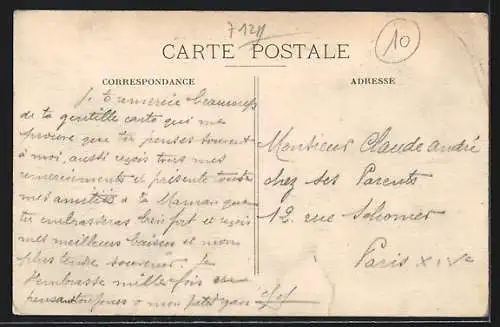 7124
10
CARTE POSTALE
CORRESPONDANCE
ADRESSE
Je te remercie beaucoup
de ta gentille carte qui me
prouve que tu penses souvent
à moi, aussi reçois tous mes
remerciements et présente toutes
mes amitiés à ta Maman que
tu embrasseras bien fort et reçois
mes meilleurs baisers et mon
plus tendre souvenir. Je
t'embrasse mille fois en
pensant toujours à mon petit
Monsieur Claude André
chez ses Parents
12 rue Schomer
Paris XIVe